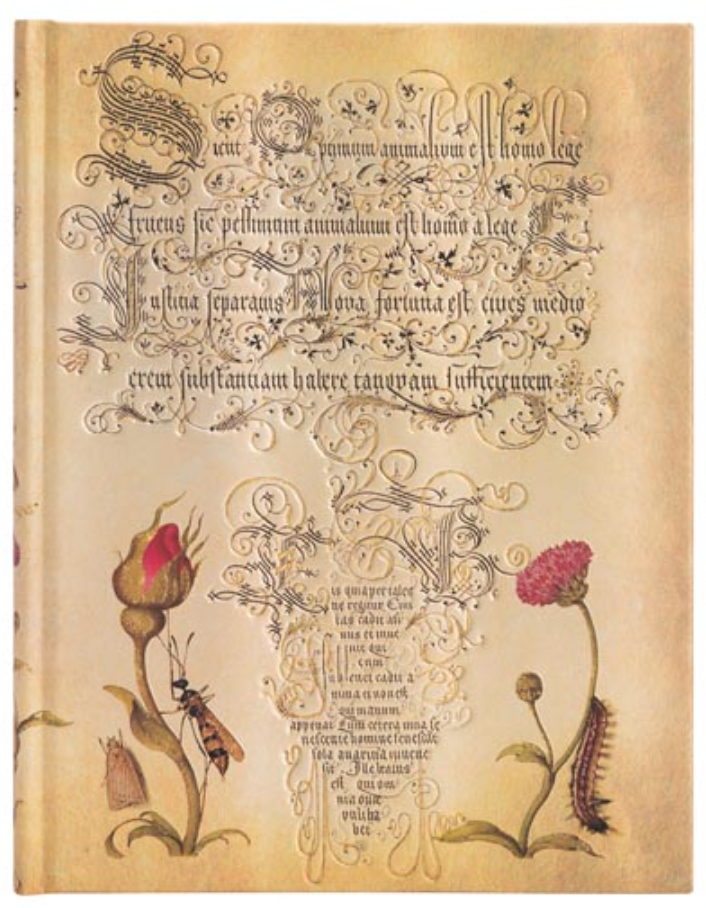 Sicut Optimum animalium est homo lege
fruens sic pessimum animalium est homo a lege Et
Justitia separatus Nova fortuna est cives medio
crem substantiam habere tanquam sufficientem
is quia per
ne regitur Civi
tas cadit
nus et
qui
cum
cadit a
nima et non est
qui manum
apponat Cum cetera se
nescente homine senescat
sola avaritia iuvene
Ille beatus
est qui om
nia quae
ha
bet